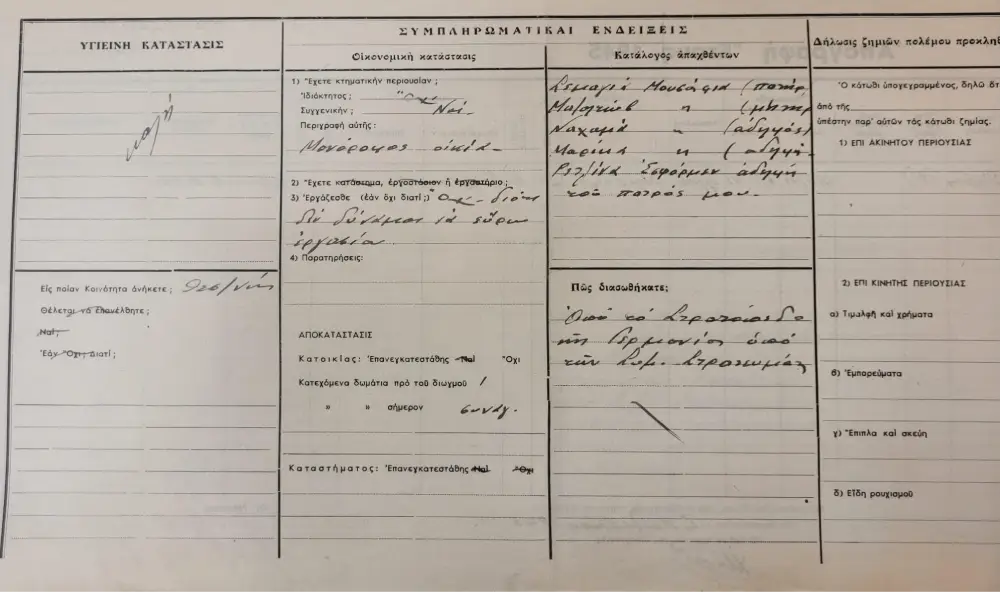 ΥΓΙΕΙΝΗ ΚΑΤΑΣΤΑΣΙΣ
καλή
Εἰς ποίαν Κοινότητα ἀνήκετε ; Θεσ/νίκης
Θέλεται νὰ ἐπανέλθητε ;
Ναί ;
Ἐὰν Ὄχι ; Διατί ;
ΣΥΜΠΛΗΡΩΜΑΤΙΚΑΙ ΕΝΔΕΙΞΕΙΣ
Οἰκονομικὴ κατάστασις
1) Ἔχετε κτηματικὴν περιουσίαν ;
Ἰδιόκτητος ; Ὄχι
Συγγενικήν ; Ναί -
Περιγραφὴ αὐτῆς :
Μονόροφος οἰκία -
2) Ἔχετε κατάστημα, ἐργοστάσιον ἢ ἐργαστήριο ;
3) Ἐργάζεσθε (ἐὰν ὄχι διατί ;) Ὄχι - διότι
δὲν δύναμαι νὰ εὕρω
ἐργασία
4) Παρατηρήσεις :
ΑΠΟΚΑΤΑΣΤΑΣΙΣ
Κατοικίας : Ἐπανεγκατεστάθης Ναί Ὄχι
Κατεχόμενα δωμάτια πρὸ τοῦ διωγμοῦ 1
» » σήμερον συναγ.
Καταστήματος : Ἐπανεγκατεστάθης Ναί Ὄχι
Κατάλογος ἀπαχθέντων
Μουσάφια (πατήρ
" (μήτηρ
Ναχαμά " (ἀδελφός)
Μαρίκα " (ἀδελφή
ἀδελφή
τοῦ πατρός μου -
Πῶς διασωθήκατε ;
Ἀπὸ τὸ Στρατόπεδο
τῆς Γερμανίας ἀπὸ
τῶν Συμ. Στρατευμάτων
Δήλωσις ζημιῶν πολέμου προκληθ
Ὁ κάτωθι ὑπογεγραμμένος, δηλῶ ὅτ
ἀπὸ τῆς
ὑπέστην παρ' αὐτῶν τὰς κάτωθι ζημίας.
1) ΕΠΙ ΑΚΙΝΗΤΟΥ ΠΕΡΙΟΥΣΙΑΣ
2) ΕΠΙ ΚΙΝΗΤΗΣ ΠΕΡΙΟΥΣΙΑΣ
α) Τιμαλφῆ καὶ χρήματα
β) Ἐμπορεύματα
γ) Ἔπιπλα καὶ σκεύη
δ) Εἴδη ρουχισμοῦ